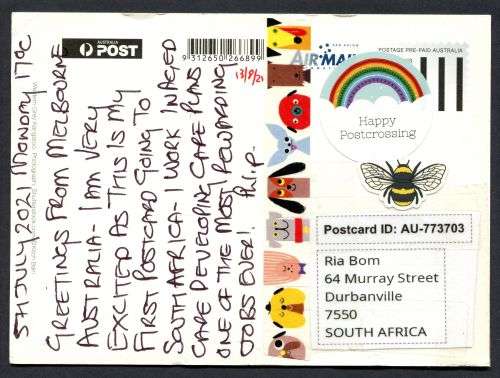 AUSTRALIA
POST
9 312650 266899
13/8/21
AIRMAIL
PAR AVION
POSTAGE PRE-PAID AUSTRALIA
5TH JULY 2021 MONDAY 17°C
GREETINGS FROM MELBOURNE
AUSTRALIA - I AM VERY
EXCITED AS THIS IS MY
FIRST POSTCARD GOING TO
SOUTH AFRICA - I WORK IN AGED
CARE DEVELOPING CARE PLANS
ONE OF THE MOST REWARDING
JOBS EVER!
Happy
Postcrossing
Postcard ID: AU-773703
Ria Bom
64 Murray Street
Durbanville
7550
SOUTH AFRICA